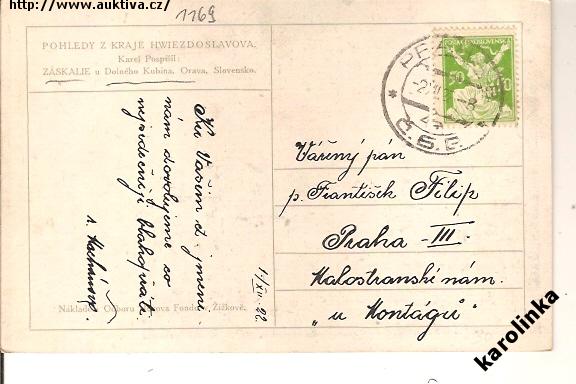 http://www.auktiva.cz/
1169
POHLEDY Z KRAJE HWIEZDOSLAVOVA.
Karel Pospíšil:
ZÁSKALIE u Dolného Kubína. Orava, Slovensko.
Ku Vašim jmeni-
nám dovolujeme so
nejsrdečněji blahopřáti.
1/XII. 22.
Nákladem Odboru Fondu v Žižkově.
PRA
Č.S.P.
POŠTA ČESKOSLOVENSKÁ
Vážený pán
p. František Filip
Praha - III.
Malostranské nám.
„u Montágů"
karolinka